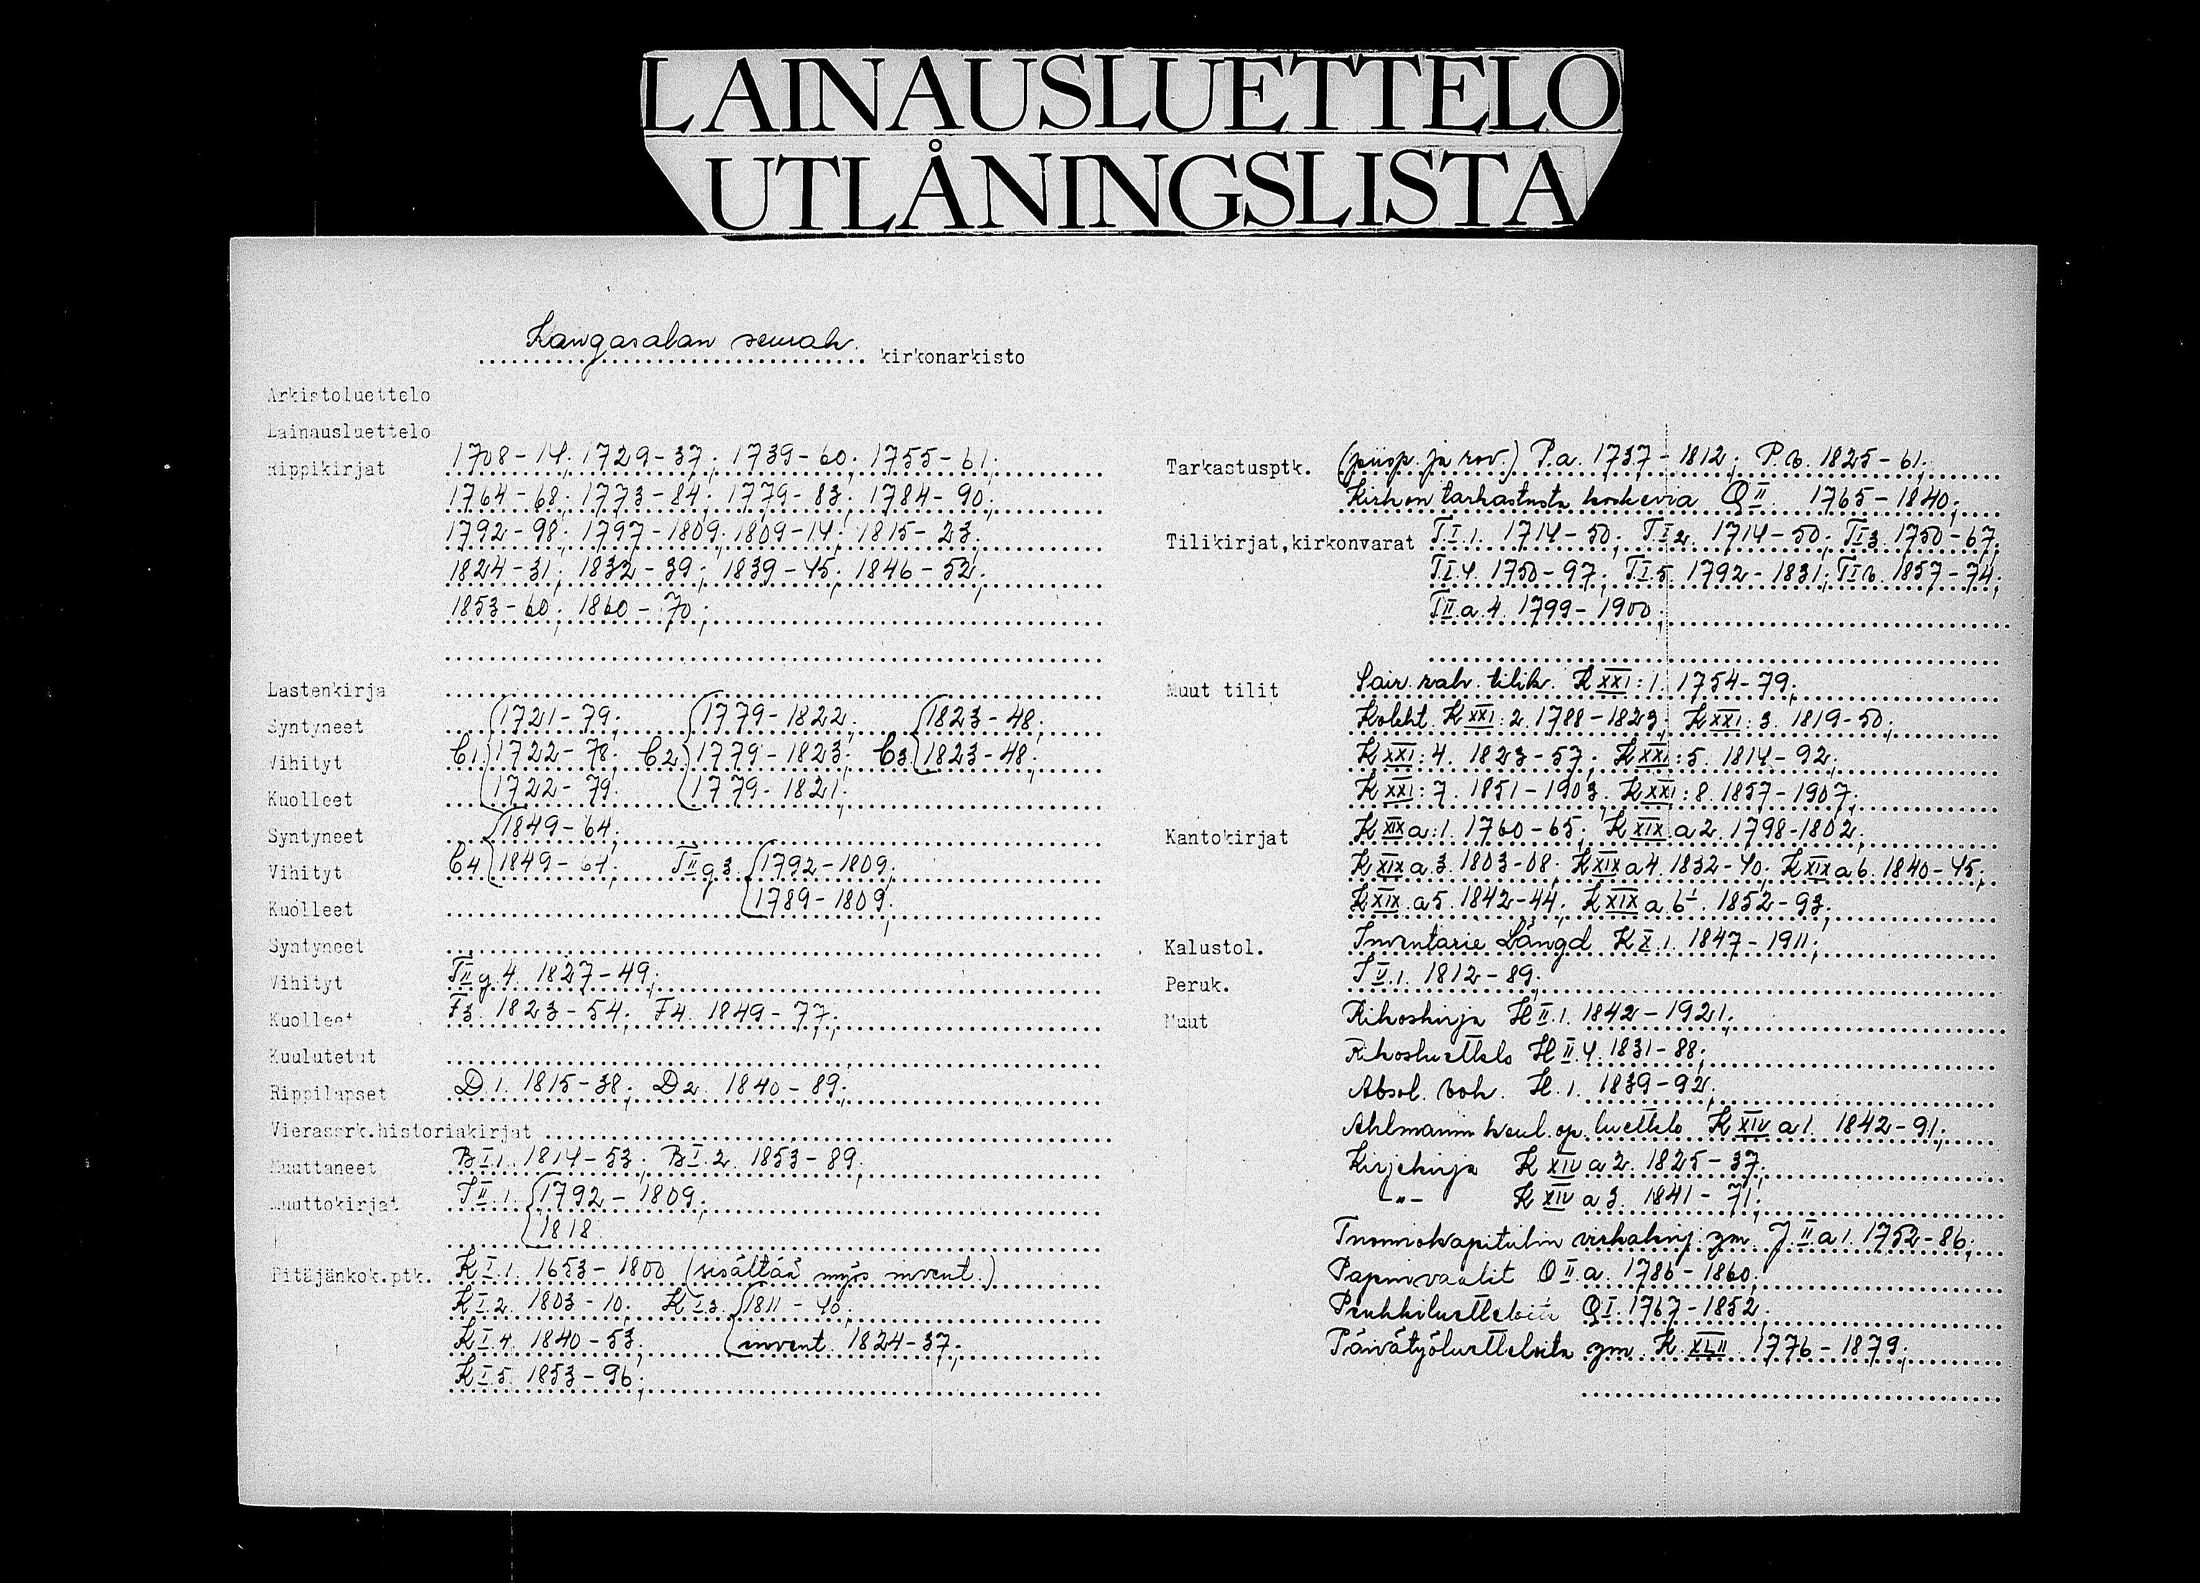 LAINAUSLUETTELO
UTLÅNINGSLISTA
Kangasalan seurak. kirkonarkisto
Arkistoluettelo
Lainausluettelo
Rippikirjat 1708-14; 1729-37; 1739-60; 1755-61;
1764-68; 1773-84; 1779-83; 1784-90;
1792-98; 1797-1809; 1809-14; 1815-23;
1824-31; 1832-39; 1839-45; 1846-52;
1853-60; 1860-70;
Lastenkirja
Syntyneet 1721-79; 1779-1822; 1823-48;
Vihityt C1 1722-78; C2 1779-1823; C3 1823-48;
Kuolleet 1722-79; 1779-1821;
Syntyneet 1849-64;
Vihityt C4 1849-61; TII g3 1792-1809;
Kuolleet 1789-1809;
Syntyneet
Vihityt TII g.4. 1827-49;
Kuolleet F3. 1823-54; F4. 1849-77;
Kuulutetut
Rippilapset D.1. 1815-38; D2. 1840-89;
Vierassrk.historiakirjat
Muuttaneet B I.1. 1814-53; B I.2. 1853-89;
Muuttokirjat II.1. 1792-1809;
1818
Pitäjänkok.ptk. K I.1. 1653-1800 (sisältää myös invent.)
K I.2. 1803-10; K I.3. 1811-40;
K I.4. 1840-53; invent. 1824-37;
K I.5. 1853-96;
Tarkastusptk. (piisp. ja rov.) P.a. 1737-1812; P.b. 1825-61;
Kirkon tarkastusta koskevia Q II. 1765-1840;
Tilikirjat,kirkonvarat T I.1. 1714-50; T I 2. 1714-50; T I 3. 1750-67;
T I.4. 1750-97; T I.5. 1792-1831; T I 6. 1857-74;
T II.a.4. 1799-1900;
Muut tilit Sair. rah. tilik. K XXI:1. 1754-79;
Koleht. K XXI:2. 1788-1823; K XXI:3. 1819-50;
K XXI:4. 1823-57; K XXI:5. 1814-92;
K XXI:7. 1851-1903; K XXI:8. 1857-1907;
Kantokirjat K XIX a:1. 1760-65; K XIX a2. 1798-1802;
K XIX a.3. 1803-08; K XIX a4. 1832-40; K XIX a6. 1840-45;
K XIX.a5. 1842-44; K XIX a.6. 1852-93;
Kalustol. Inventarie Längd K X.1. 1847-1911;
Peruk. I V.1. 1812-89;
Muut Rikoskirja H II.1. 1842-1921;
Rikosluettelo H II.4. 1831-88;
Absol. H.1. 1839-92;
Ahlmannin koul. op. luettelo K XIV a1. 1842-91;
Kirjekirja K XIV a2. 1825-37;
-"- K XIV a3. 1841-71;
Tuomiokapitulin virkakirj. ym. J II a1. 1752-86;
Papinvaalit O II.a. 1786-1860;
Penkkiluetteloita Q I. 1767-1852;
Päivätyöluetteloita ym. K. XLII. 1776-1879;